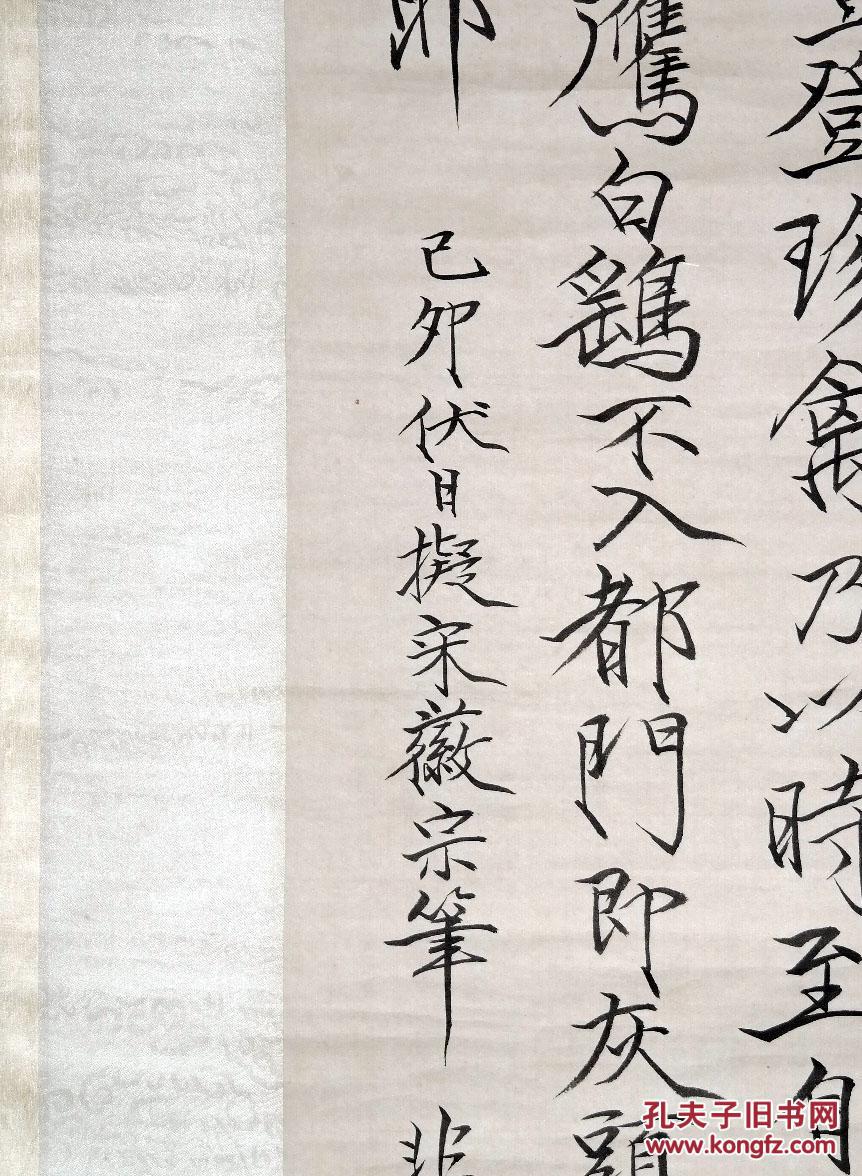 登珍禽乃以時至
鷹白鷂不入都門即灰
耶
己卯伏日擬宋徽宗筆
孔夫子旧书网
www.kongfz.com